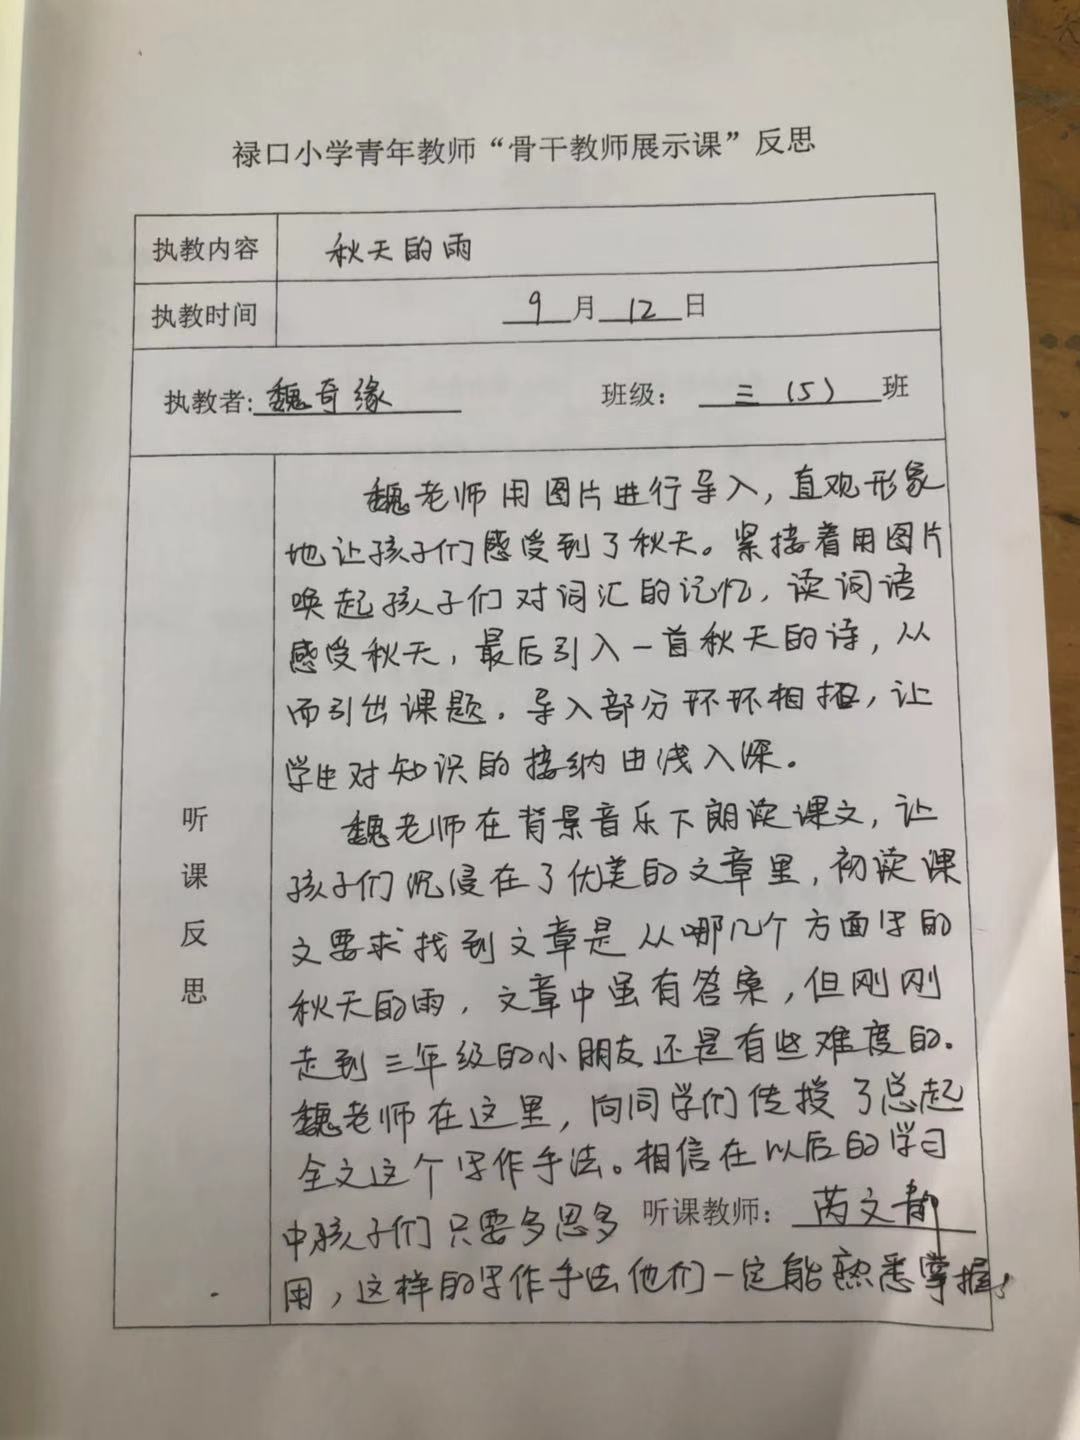 禄口小学青年教师“骨干教师展示课”反思
执教内容 秋天的雨
执教时间 9月12日
执教者:魏奇缘 班级：三（5）班
听课反思
魏老师用图片进行导入，直观形象
地让孩子们感受到了秋天。紧接着用图片
唤起孩子们对词汇的记忆，读词语
感受秋天，最后引入一首秋天的诗，从
而引出课题。导入部分环环相扣，让
学生对知识的接纳由浅入深。
魏老师在背景音乐下朗读课文，让
孩子们沉浸在了优美的文章里，初读课
文要求找到文章是从哪几个方面写的
秋天的雨，文章中虽有答案，但刚刚
走到三年级的小朋友还是有些难度的。
魏老师在这里，向同学们传授了总起
全文这个写作手法。相信在以后的学习
中孩子们只要多思多
听课教师：芮文静
用，这样的写作手法他们一定能熟悉掌握。